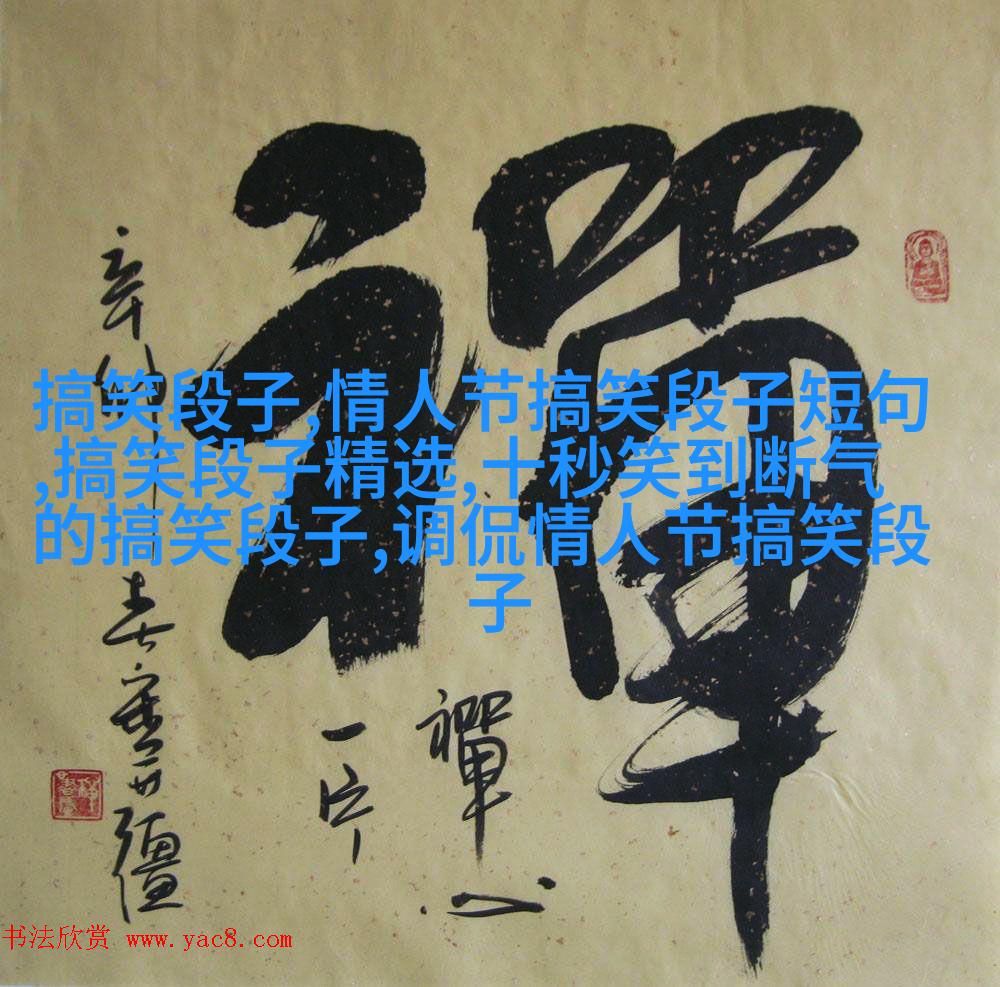 禪
搞笑段子,情人节搞笑段子短句
,搞笑段子精选,十秒笑到断气
的搞笑段子,调侃情人节搞笑段
子
禪心
一片
辛卯年春
书法欣赏 www.yac8.com